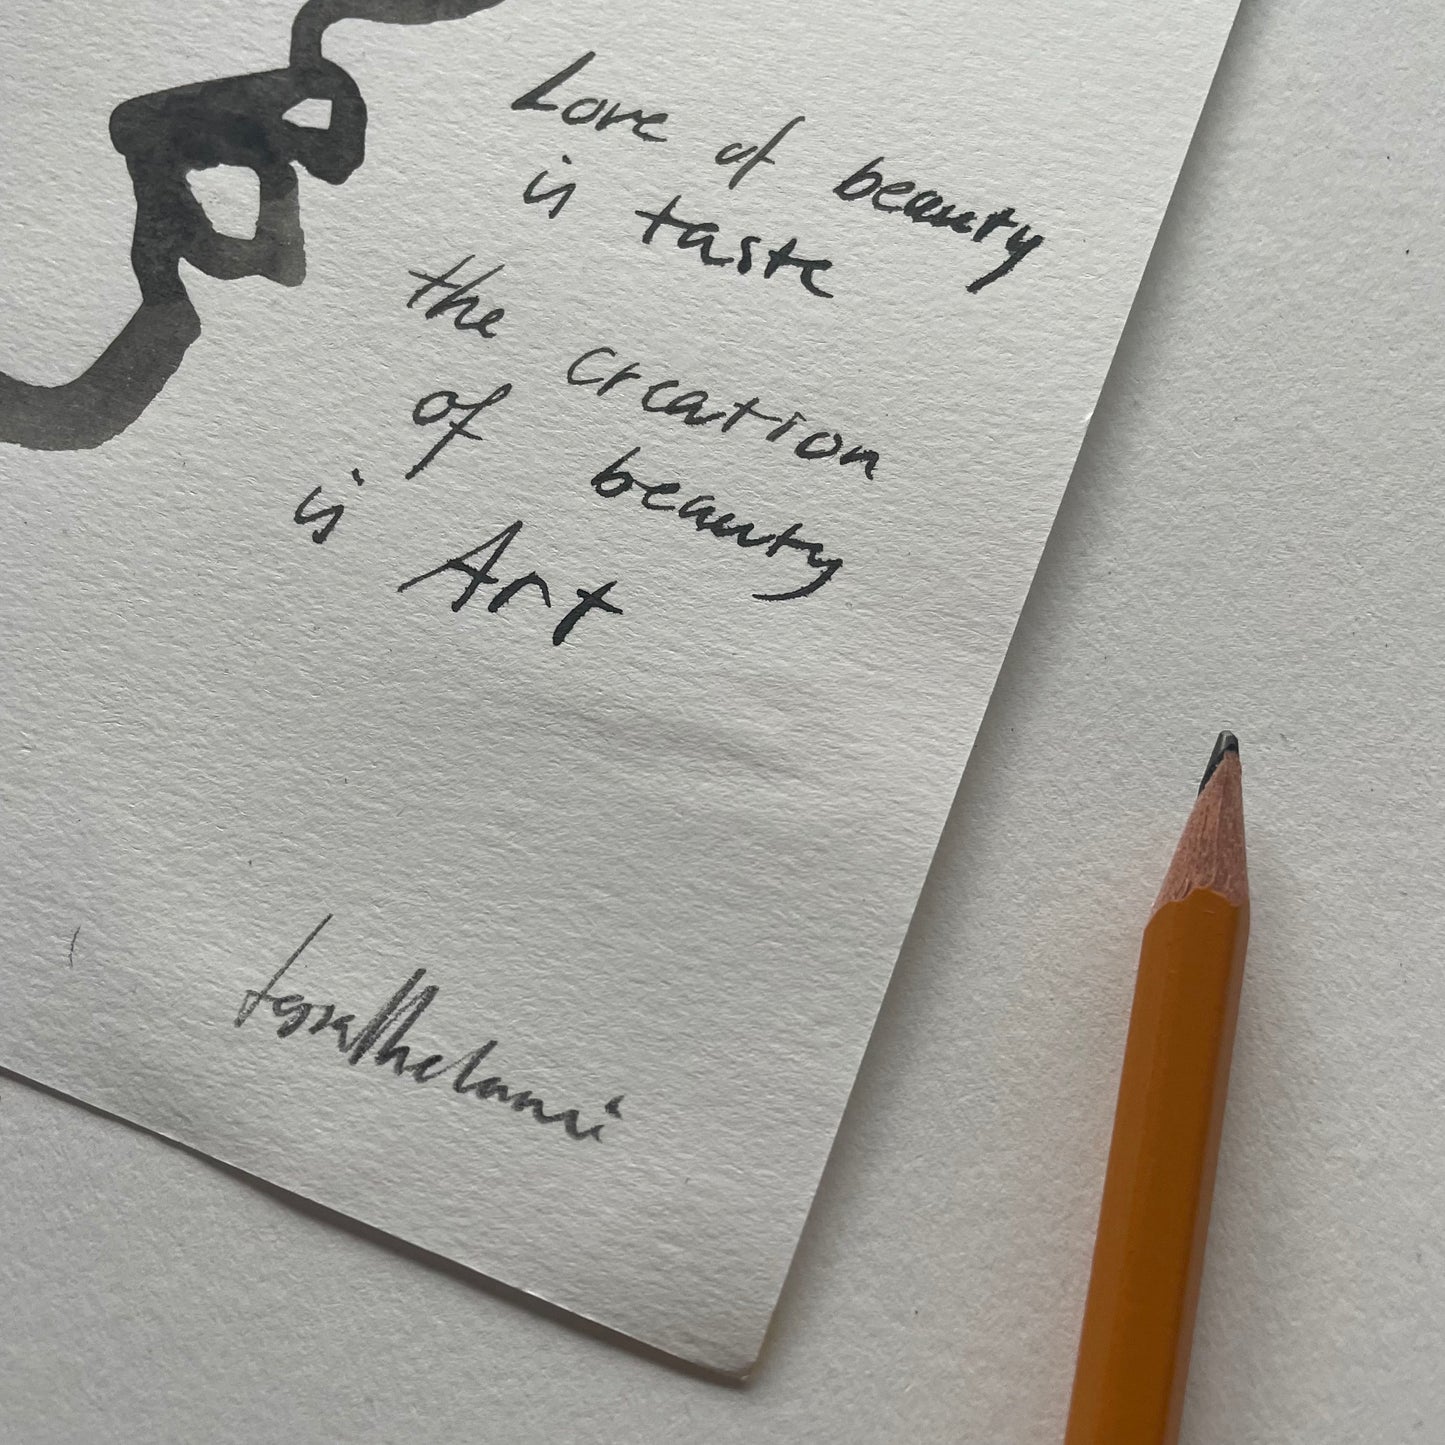 Love of beauty
is taste
the creation
of beauty
is Art
tessathelami